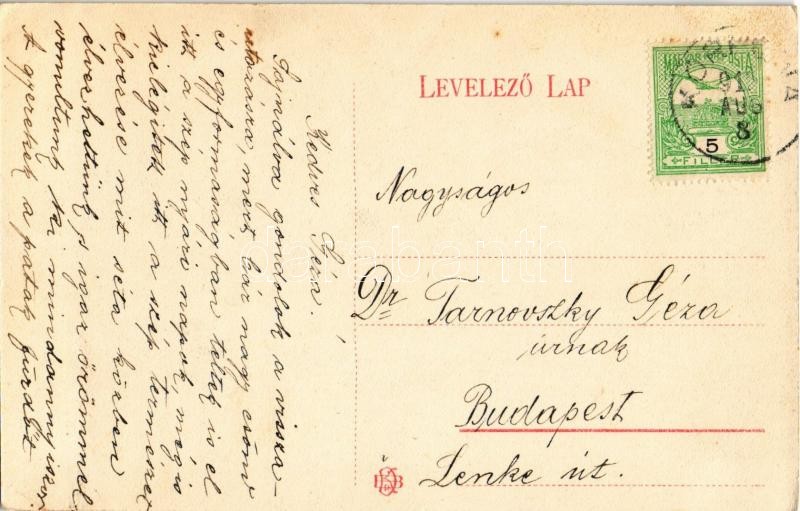 LEVELEZŐ LAP
MAGYAR KIR. POSTA
AUG
8
5
FILLÉR
Nagyságos
Dr Tarnovszky Géza
úrnak
Budapest
Lenke út.
Kedves Géza!
Sajnálva gondolok a vissza-
utazásra, mert bár nagy csönd
és egyformaságban teltek is el
itt a szép nyári napok, mégis
kielégített a szép természet
élvezése mit séta közben
élvezhettünk s igaz örömmel
vonultunk ki mindannyiszor
A gyerekek a patak fürdőt
darabanth